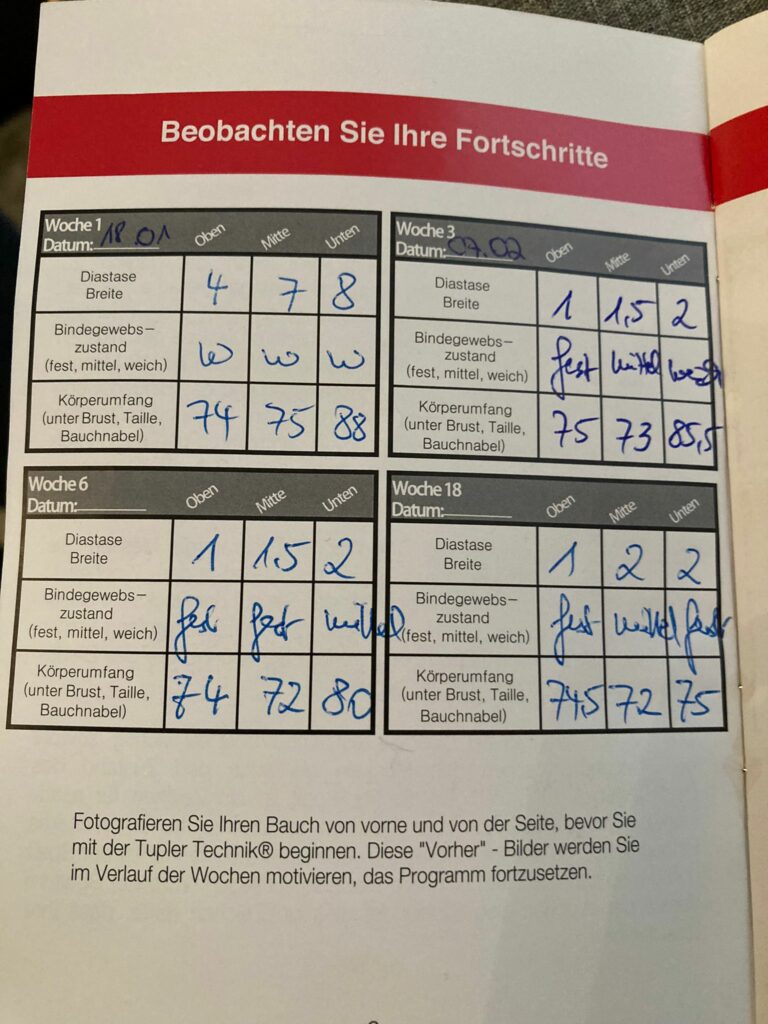 Beobachten Sie Ihre Fortschritte
Woche 1
Datum: 18.01 Oben Mitte Unten
Diastase Breite 4 7 8
Bindegewebs–zustand (fest, mittel, weich) w w w
Körperumfang (unter Brust, Taille, Bauchnabel) 74 75 88
Woche 3
Datum: 07.02 Oben Mitte Unten
Diastase Breite 1 1,5 2
Bindegewebs–zustand (fest, mittel, weich) fest mittel weich
Körperumfang (unter Brust, Taille, Bauchnabel) 75 73 85,5
Woche 6
Datum: Oben Mitte Unten
Diastase Breite 1 1.5 2
Bindegewebs–zustand (fest, mittel, weich) fest fest mittel
Körperumfang (unter Brust, Taille, Bauchnabel) 74 72 80
Woche 18
Datum: Oben Mitte Unten
Diastase Breite 1 2 2
Bindegewebs–zustand (fest, mittel, weich) fest mittel fest
Körperumfang (unter Brust, Taille, Bauchnabel) 74,5 72 75
Fotografieren Sie Ihren Bauch von vorne und von der Seite, bevor Sie
mit der Tupler Technik® beginnen. Diese "Vorher" - Bilder werden Sie
im Verlauf der Wochen motivieren, das Programm fortzusetzen.